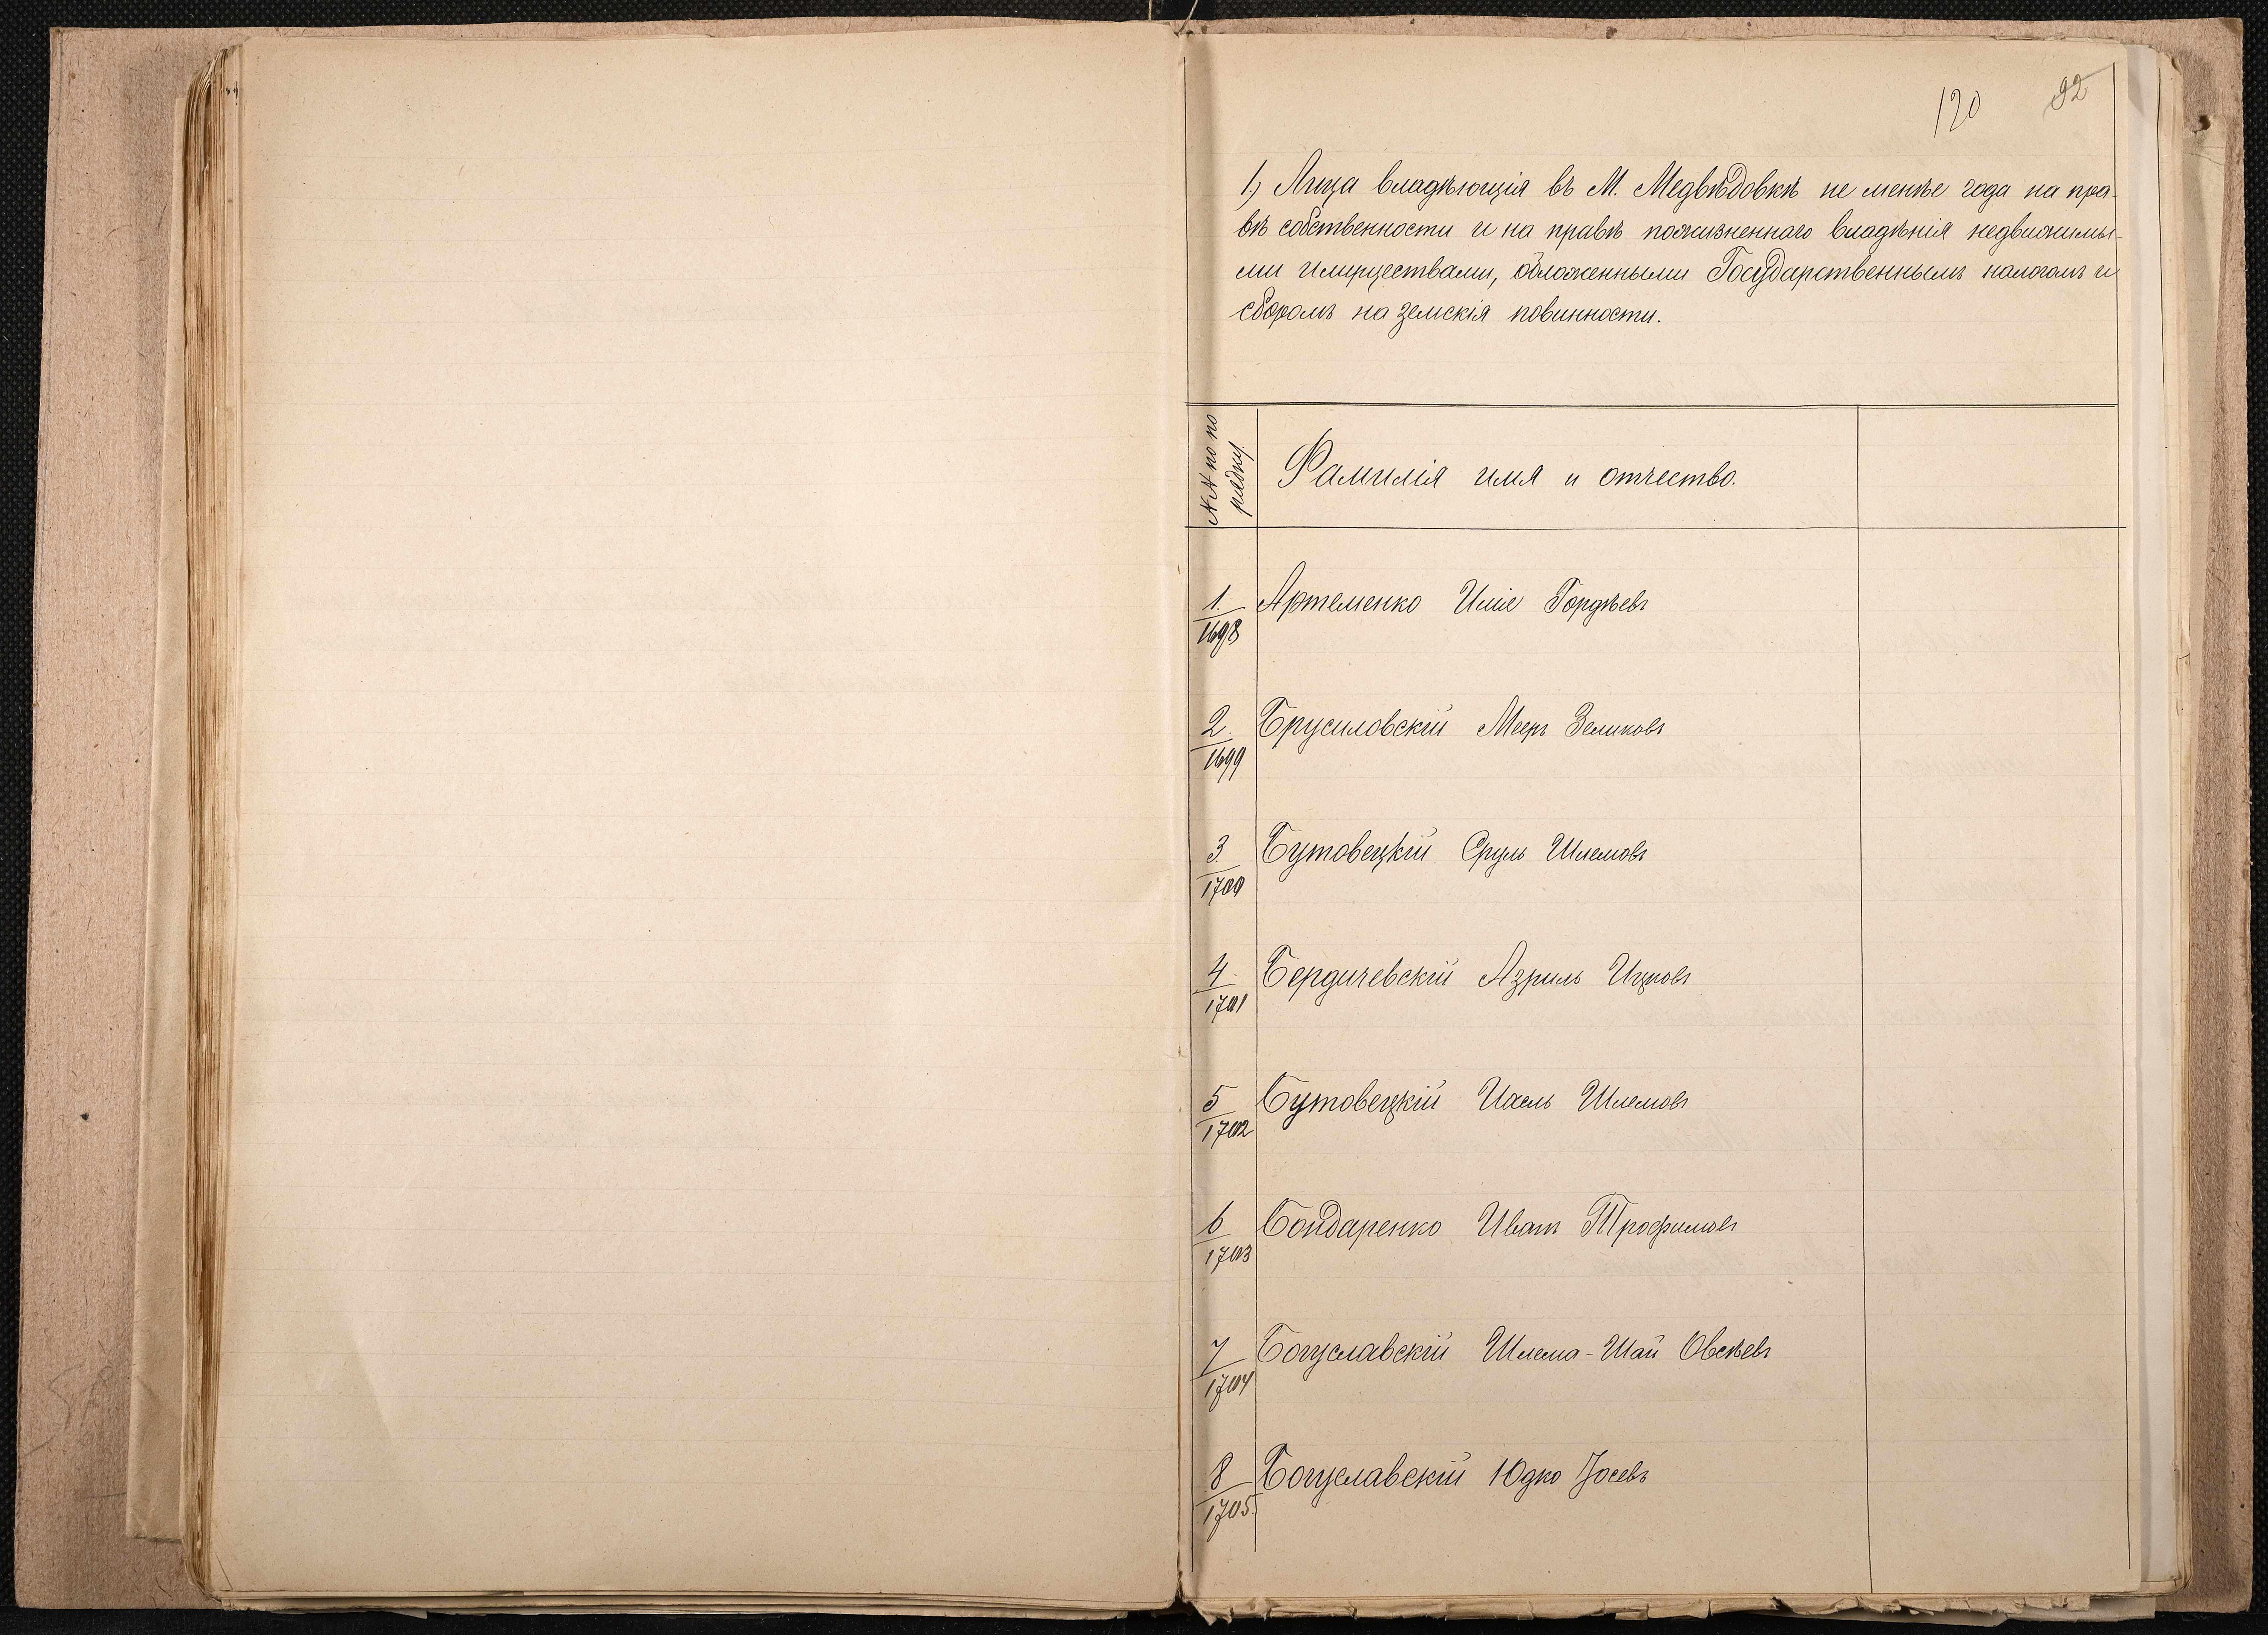 120 92
1.) Лица владѣющія въ М. Медвѣдовкѣ не менѣе года на пра-
вѣ собственности и на правѣ пожизненнаго владѣнія недвижимы-
ми имуществами, обложенными Государственнымъ налогомъ и
сборомъ на земскія повинности.
№№ по по
рядку.
Фамилія имя и отчество.
1. Артеменко Иліе Гордѣевъ
1698
2. Брусиловскій Мееръ Зеликовъ
1699
3. Бутовецкій Сруль Шлемовъ
1700
4. Бердичевскій Азриль Ицковъ
1701
5 Бутовецкій Ихель Шлемовъ
1702
6 Бондаренко Иванъ Трофимовъ
1703
7 Богуславскій Шлема-Шай Овсѣевъ
1704
8 Богуславскій Юдко Іосевъ
1705.